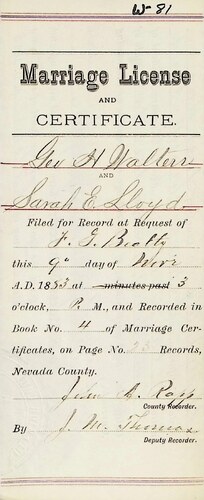 W-81
Marriage License
AND
CERTIFICATE.
Geo H Walters
AND
Sarah E. Lloyd.
Filed for Record at Request of
F. G. Beatty
this 9th day of Nov'r
A.D. 1883 at minutes past 3
o'clock, P. M., and Recorded in
Book No. 4 of Marriage Cer-
tificates, on Page No. Records,
Nevada County.
John A. Rapp
County Recorder.
By J. M. Thomas
Deputy Recorder.